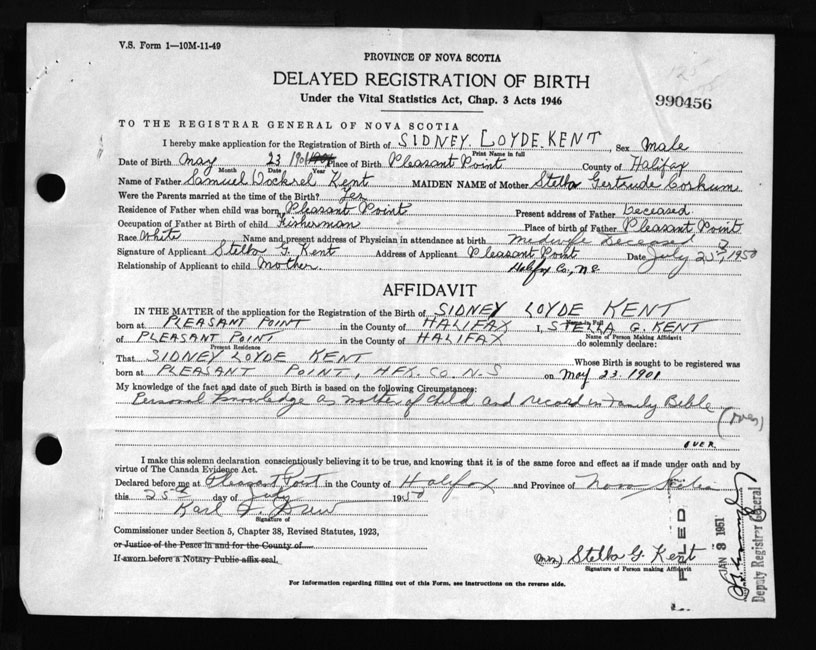 V.S. Form 1—10M-11-49
PROVINCE OF NOVA SCOTIA
DELAYED REGISTRATION OF BIRTH
Under the Vital Statistics Act, Chap. 3 Acts 1946
990456
TO THE REGISTRAR GENERAL OF NOVA SCOTIA
I hereby make application for the Registration of Birth of SIDNEY LOYDE KENT, Sex Male
Print Name in full
Date of Birth May 23 1901 Place of Birth Pleasant Point County of Halifax
Month Date Year
Name of Father Samuel Kent MAIDEN NAME of Mother Stella Gertrude Corkum
Were the Parents married at the time of the Birth? Yes
Residence of Father when child was born Pleasant Point Present address of Father Deceased
Occupation of Father at Birth of child Fisherman Place of birth of Father Pleasant Point
Race White Name and present address of Physician in attendance at birth Midwife Deceased
Signature of Applicant Stella G. Kent Address of Applicant Pleasant Point Date July 25th, 1950
Relationship of Applicant to child Mother. Halifax Co., N.S
AFFIDAVIT
IN THE MATTER of the application for the Registration of the Birth of SIDNEY LOYDE KENT
born at PLEASANT POINT in the County of HALIFAX I, STELLA G. KENT
Name of Person Making Affidavit
of PLEASANT POINT in the County of HALIFAX do solemnly declare:
Present Residence
That SIDNEY LOYDE KENT Whose Birth is sought to be registered was
born at PLEASANT POINT, HFX. CO. N.S on May 23. 1901
My knowledge of the fact and date of such Birth is based on the following Circumstances:
Personal knowledge as mother of child and record in Family Bible (over)
OVER
I make this solemn declaration conscientiously believing it to be true, and knowing that it is of the same force and effect as if made under oath and by
virtue of The Canada Evidence Act.
Declared before me at Pleasant Point in the County of Halifax and Province of Nova Scotia
this 25th day of July 1950
Karl
Signature of
Commissioner under Section 5, Chapter 38, Revised Statutes, 1923,
or Justice of the Peace in and for the County of
If sworn before a Notary Public affix seal.
(Mrs) Stella G. Kent
Signature of Person making Affidavit
FILED
JAN 3 1951
Deputy Registrar General
For Information regarding filling out of this Form, see instructions on the reverse side.